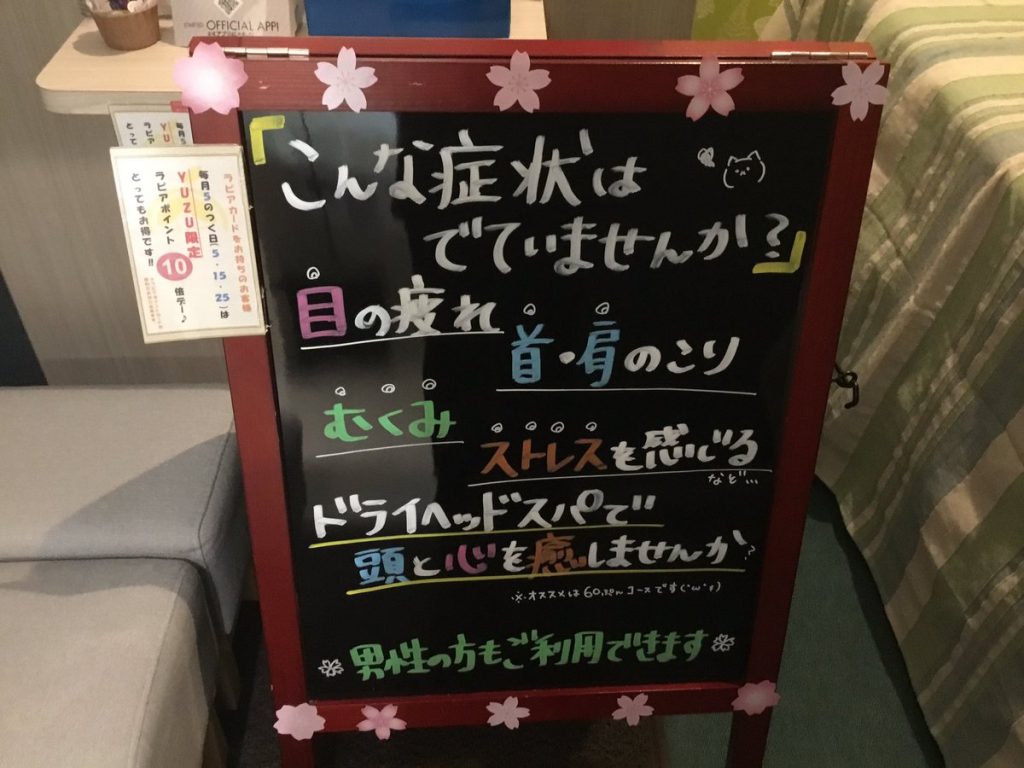 OFFICIAL APP!
ラピアカードをお持ちのお客様
毎月5のつく日(5・15・25)は
YUZU限定
ラピアポイント10倍デー♪
とってもお得です!!
「こんな症状は
でていませんか?」
目の疲れ
首・肩のこり
むくみ
ストレスを感じる
など…
ドライヘッドスパで
頭と心を癒しませんか?
※オススメは60ぷんコースです(・ω・)
男性の方もご利用できます